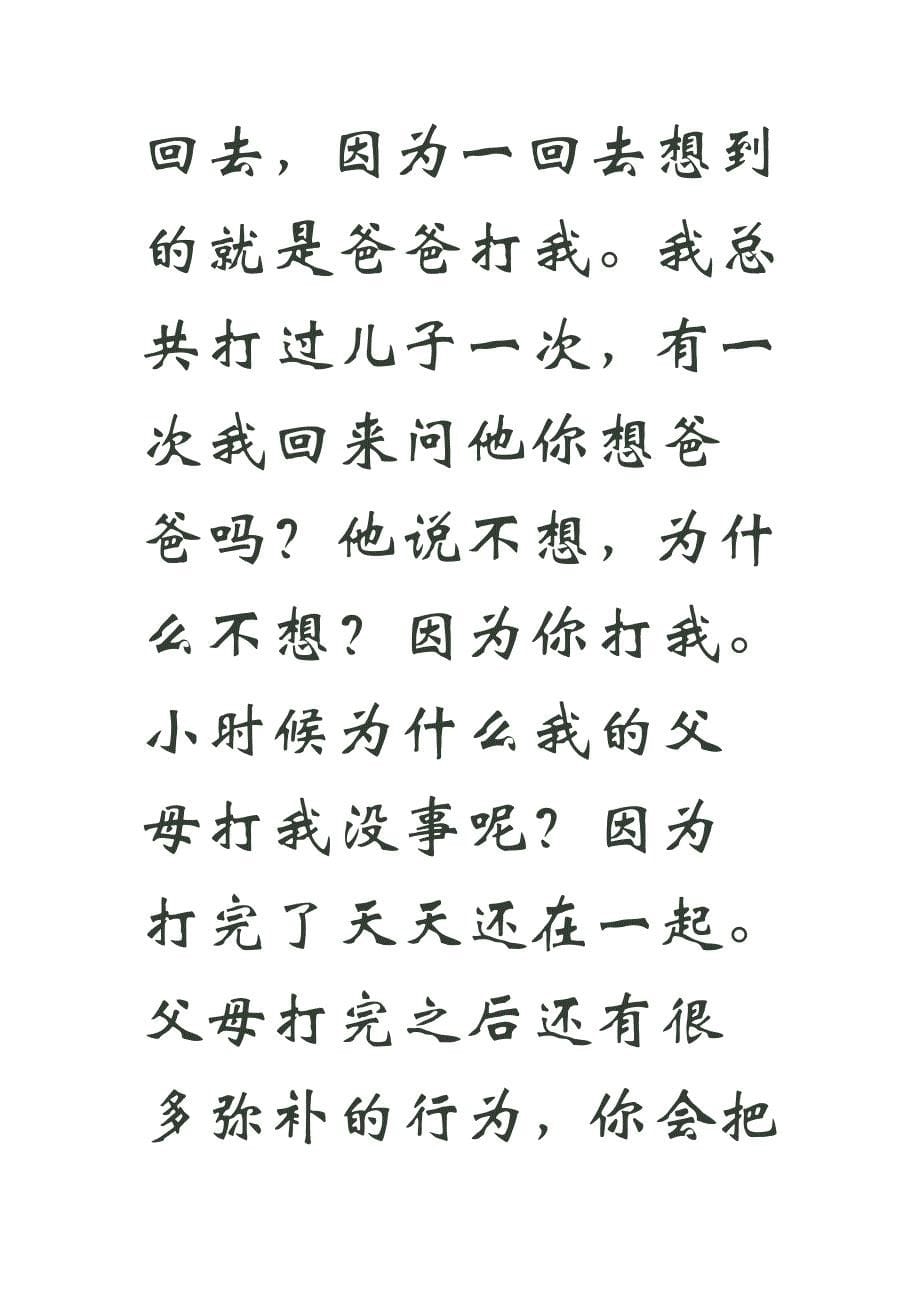 回去，因为一回去想到
的就是爸爸打我。我总
共打过儿子一次，有一
次我回来问他你想爸
爸吗？他说不想，为什
么不想？因为你打我。
小时候为什么我的父
母打我没事呢？因为
打完了天天还在一起。
父母打完之后还有很
多弥补的行为，你会把